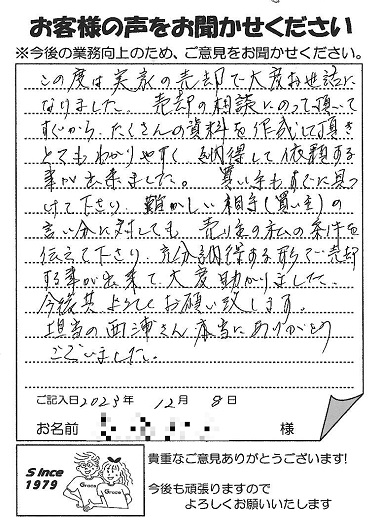 お客様の声をお聞かせください
※今後の業務向上のため、ご意見をお聞かせください。
この度は実家の売却で大変お世話に
なりました。売却の相談にのって頂いて
すぐから、たくさんの資料を作成して頂き
とてもわかりやすく納得して依頼する
事が出来ました。買い手もすぐに見つ
けて下さり、難かしい相手(買い主)の
言い分に対しても、売り主の私の条件を
伝えて下さり、充分納得する形で売却
する事が出来て大変助かりました。
今後共よろしくお願い致します。
担当の西浦さん本当にありがとう
ございました。
ご記入日2023年 12月 8日
お名前 様
Since
1979
Grace
Grace
貴重なご意見ありがとうございます!
今後も頑張りますので
よろしくお願いいたします